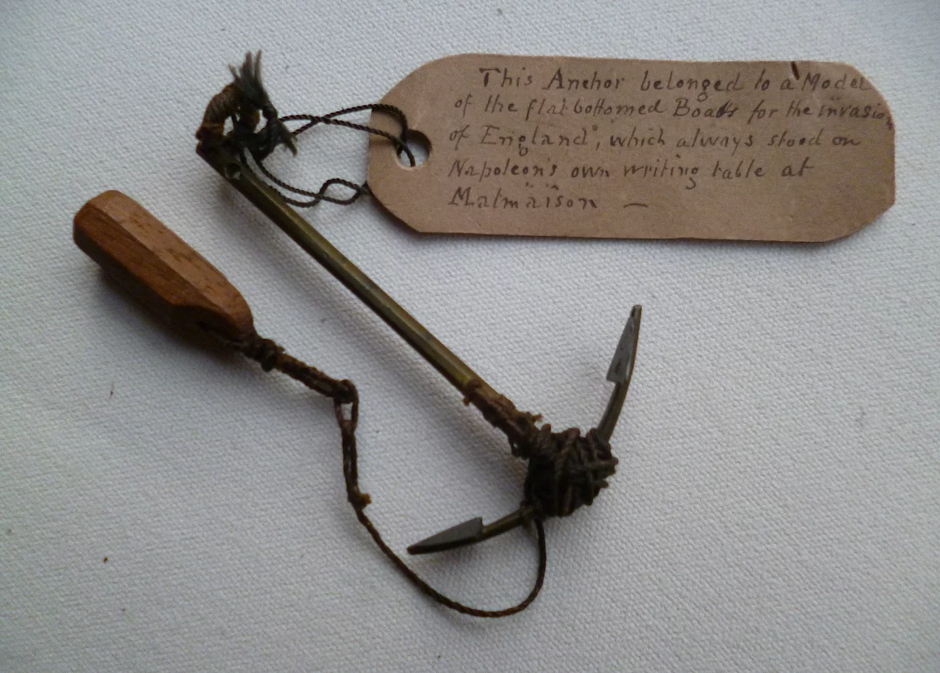 This Anchor belonged to a "Model
of the flat bottomed Boats for the invasion
of England", which always stood on
Napoleon's own writing table at
Malmaison —